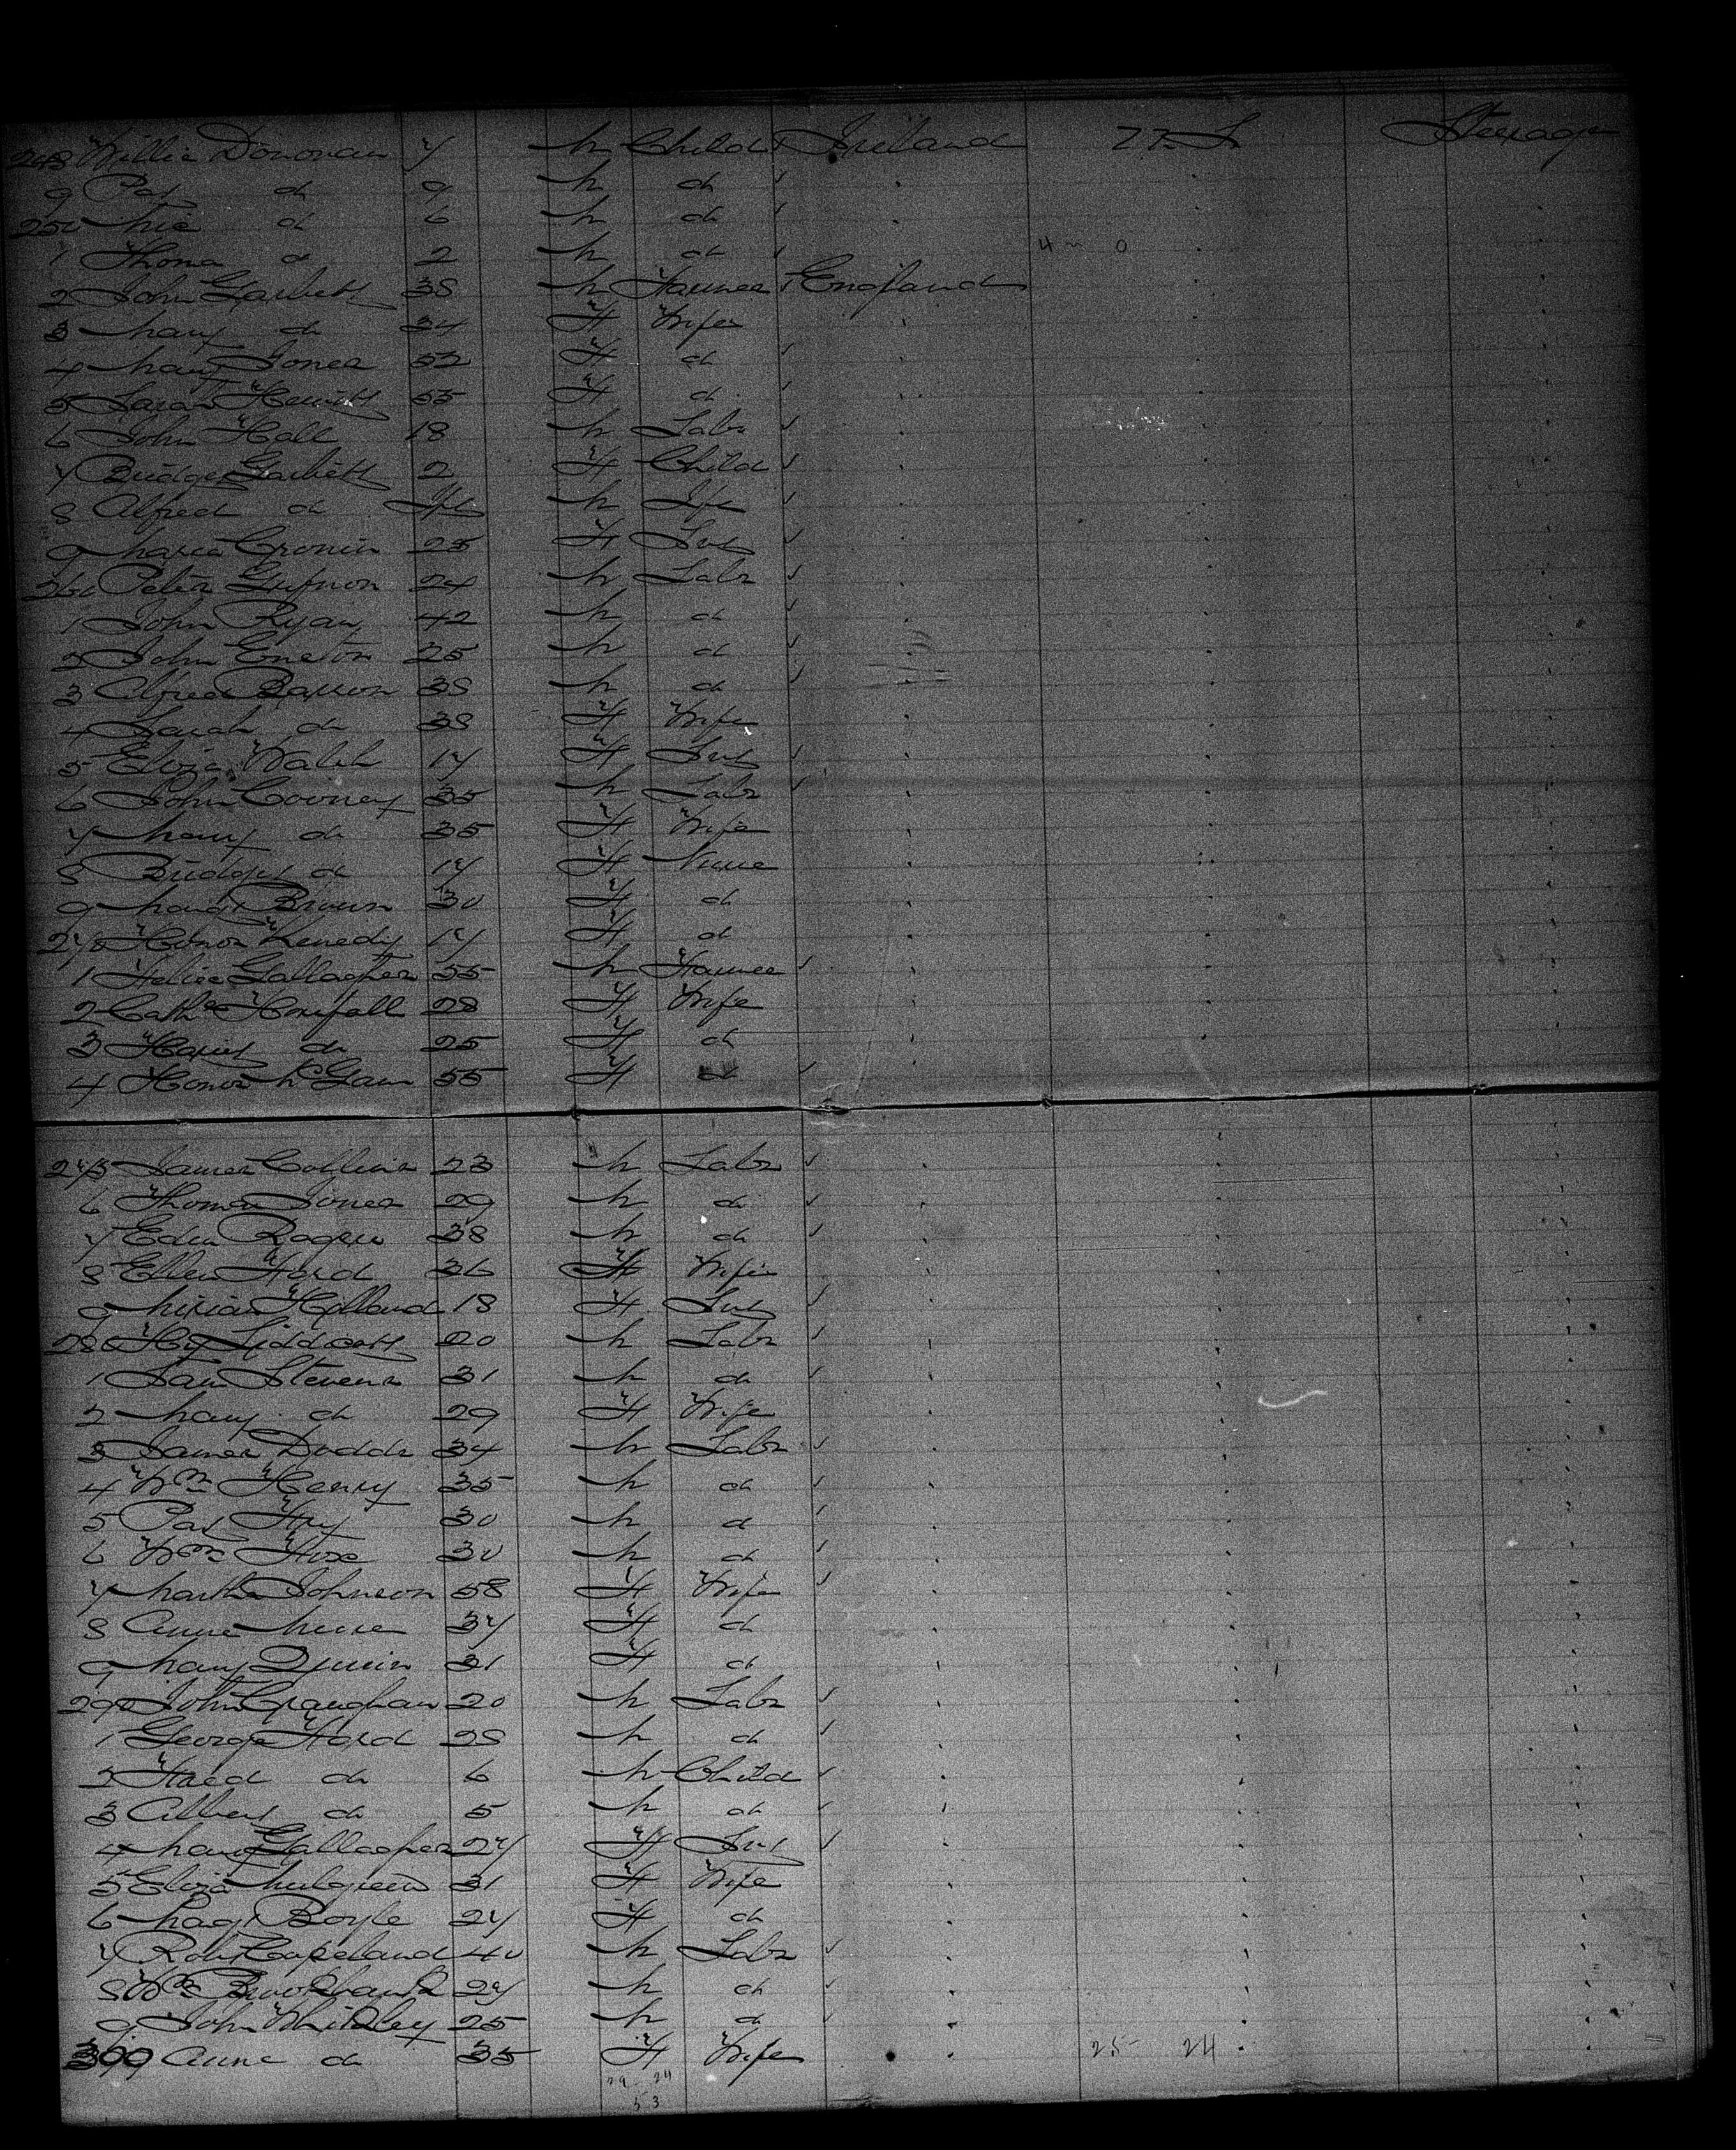 248 Willie Donovan 7 M Child Ireland U.S. Steerage
9 Pat do 9 M do
250 Mic do 6 M do
1 Thomas do 2 M do 4 0
2 John Garbett 38 M Farmer England
3 Mary do 34 F Wife
4 Mary Jones 52 F do
5 Sarah Hewitt 55 F do
6 John Hall 18 M Labr
7 Bridget Garbett 2 F Child
8 Alfred do Inft M Inft
9 Maria Cronin 25 F Svt
260 Peter 24 M Labr
1 John Ryan 42 M do
2 John 25 M do
3 Alfred 38 M do
4 Sarah do 38 F Wife
5 Eliza Walsh 17 F Svt
6 John Cooney 35 M Labr
7 Mary do 35 F Wife
8 Bridget do 17 F
9 Margt Brown 30 F do
270 Honor Kenedy 17 F do
1 Gallagher 55 M Farmer
2 Cathe Horsfall 28 F Wife
3 Hariet do 25 F do
4 Honor 55 F do
275 James Collins 23 M Labr
6 Thomas Jones 29 M do
7 Edwd Rogers 38 M do
8 Ellen Ford 36 F Wife
9 Miriam Holland 18 F Svt
280 Hy Liddicott 20 M Labr
1 Sam Stevens 31 M do
2 Mary do 29 F Wife
3 James Dodds 34 M Labr
4 Wm Henry 35 M do
5 Pat Fry 30 M do
6 Wm 30 M do
7 Martha Johnson 58 F Wife
8 Anne 37 F do
9 Mary Quinn 31 F do
290 John Graughan 20 M Labr
1 George Ford 28 M do
2 Fred do 6 M Child
3 Albert do 5 M do
4 Mary Gallagher 27 F Svt
5 Eliza Mulgreen 31 F Wife
6 Magt Boyle 27 F do
7 Robt Copeland 40 M Labr
8 Wm Brookbank 27 M do
9 John Whitley 25 M do
300 Anne do 35 F Wife 25 24
29 24
53